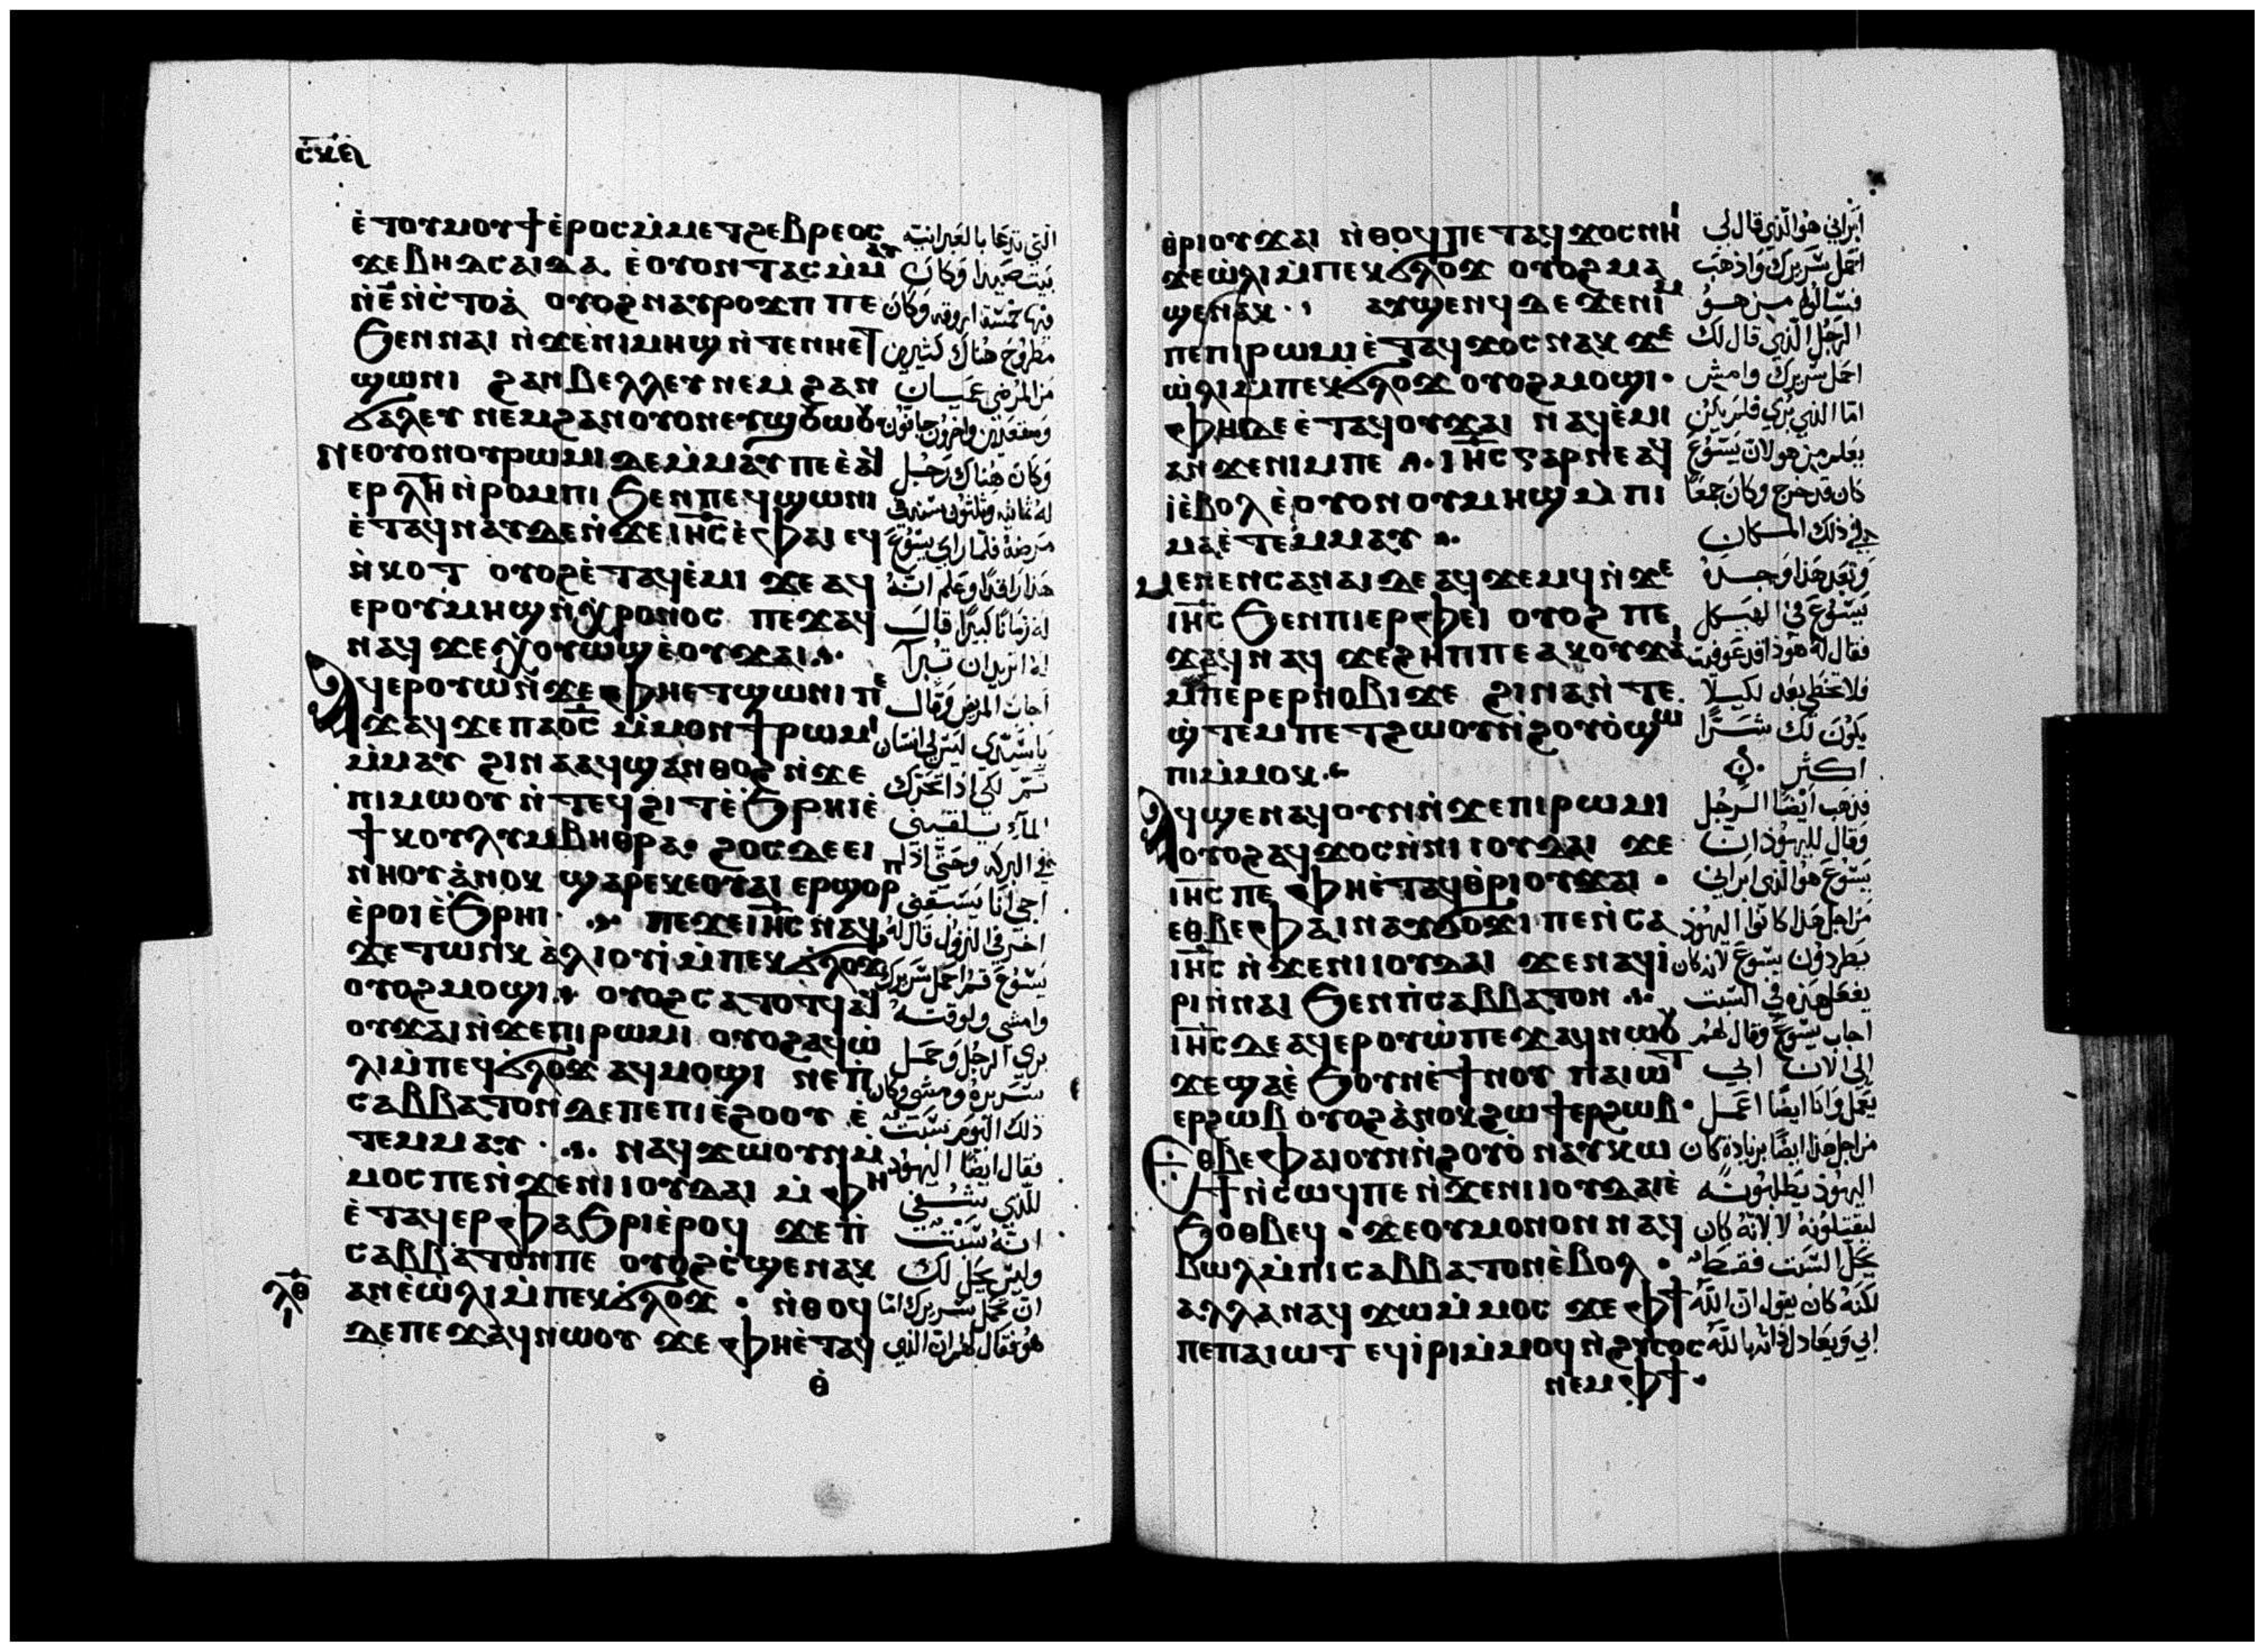 ⲥⲙⲑ
ⲉ̀ⲧⲟⲩⲙⲟⲩϯ ⲉ̀ⲣⲟⲥ ⲙ̀ⲙⲉⲧϩⲉⲃⲣⲉⲟⲥ
ϫⲉ ⲃⲏⲇⲥⲁⲓⲇⲁ ⲉ̀ⲟⲩⲟⲛ ⲧⲁⲥ ⲙ̀ⲙⲁⲩ
ⲛ̀ⲉ̅ ⲛ̀ⲥ̀ⲧⲟⲁ̀ ⲟⲩⲟϩ ⲛⲁⲩⲣⲟϫⲡ ⲡⲉ
ϧⲉⲛ ⲛⲁⲓ ⲛ̀ϫⲉ ⲛ̀ⲓⲙⲏϣ ⲛ̀ⲧⲉ ⲛⲏⲉⲧ
ϣⲱⲛⲓ ϩⲁⲛⲃⲉⲗⲗⲉⲩ ⲛⲉⲙ ϩⲁⲛ
ϭⲁⲗⲉⲩ ⲛⲉⲙ ϩⲁⲛⲟⲩⲟⲛ ⲉⲩϣⲟⲩⲱⲟⲩ
ⲛⲉⲟⲩⲟⲛ ⲟⲩⲣⲱⲙⲓ ⲇⲉ ⲙ̀ⲙⲁⲩ ⲡⲉ ⲉ̀ⲁϥ
ⲉⲣ ⲗ̅ⲏ̅ ⲛ̀ⲣⲟⲙⲡⲓ ϧⲉⲛ ⲡⲉϥϣⲱⲛⲓ
ⲉ̀ⲧⲁϥⲛⲁⲩ ⲇⲉ ⲛ̀ϫⲉ ⲓⲏ̅ⲥ̅ ⲉ̀ⲫⲁⲓ ⲉϥ
ⲛ̀ⲕⲟⲧ ⲟⲩⲟϩ ⲉ̀ⲧⲁϥⲉ̀ⲙⲓ ϫⲉ ⲁϥ
ⲉⲣ ⲟⲩⲙⲏϣ ⲛ̀ⲭⲣⲟⲛⲟⲥ ⲡⲉϫⲁϥ
ⲛⲁϥ ϫⲉ ⲭⲟⲩⲱϣ ⲉ̀ⲟⲩϫⲁⲓ
ⲁϥⲉⲣⲟⲩⲱ̀ ⲛ̀ϫⲉ ⲫⲏⲉⲧϣⲱⲛⲓ ⲡⲉ
ϫⲁϥ ϫⲉ ⲡⲁⲟ̅ⲥ̅ ⲙ̀ⲙⲟⲛϯ ⲣⲱⲙⲓ
ⲙ̀ⲙⲁⲩ ϩⲓⲛⲁ ⲁϥϣⲁⲛⲑⲟϩ ⲛ̀ϫⲉ
ⲡⲓⲙⲱⲟⲩ ⲛ̀ⲧⲉϥϩⲓⲧ ⲉ̀ϧⲣⲏⲓ ⲉ̀
ϯⲕⲟⲩⲗⲩⲙⲃⲏⲑⲣⲁ· ϩⲟⲥ ⲇⲉ ⲉⲓ
ⲛⲏⲟⲩ ⲁ̀ⲛⲟⲕ ϣⲁⲣⲉ ⲕⲉⲟⲩⲁⲓ ⲉⲣϣⲟⲣⲡ
ⲉ̀ⲣⲟⲓ ⲉ̀ϧⲣⲏⲓ· ⲡⲉϫⲉ ⲓⲏ̅ⲥ̅ ⲛⲁϥ
ϫⲉ ⲧⲱⲛⲕ ⲁ̀ⲗⲓⲟⲩⲓ̀ ⲙ̀ⲡⲉⲕϭⲗⲟϫ
ⲟⲩⲟϩ ⲙⲟϣⲓ ⲟⲩⲟϩ ⲥⲁⲧⲟⲧϥ ⲁϥ
ⲟⲩϫⲁⲓ ⲛ̀ϫⲉ ⲡⲓⲣⲱⲙⲓ ⲟⲩⲟϩ ⲁϥⲱ̀
ⲗⲓ ⲙ̀ⲡⲉϥϭⲗⲟϫ ⲁϥⲙⲟϣⲓ ⲛⲉ ⲡ̀
ⲥⲁⲃⲃⲁⲧⲟⲛ ⲇⲉ ⲡⲉ ⲡⲓⲉ̀ϩⲟⲟⲩ ⲉ̀
ⲧⲉⲙⲙⲁⲩ· ⲛⲁⲩϫⲱ ⲟⲩⲛ ⲙ̀
ⲙⲟⲥ ⲡⲉ ⲛ̀ϫⲉ ⲛⲓⲓⲟⲩⲇⲁⲓ ⲙ̀ⲫⲏ
ⲉ̀ⲧⲁϥⲉⲣⲫⲁϧⲣⲓ ⲉ̀ⲣⲟϥ ϫⲉ ⲡ̀
ⲥⲁⲃⲃⲁⲧⲟⲛ ⲡⲉ ⲟⲩⲟϩ ⲥ̀ϣⲉ ⲛⲁⲕ
ⲁⲛ ⲉ̀ⲱ̀ⲗⲓ ⲙ̀ⲡⲉⲕϭⲗⲟϫ· ⲛ̀ⲑⲟϥ
ⲇⲉ ⲡⲉϫⲁϥ ⲛⲱⲟⲩ ϫⲉ ⲫⲏⲉ̀ⲧⲁϥ
ⲗ̅ⲑ̅
ⲑ̀
التي تدعا بالعبرانية
بيت صيدا وكان
فيها خمسة اروقه وكان
مطروح هناك كثيرين
من المرضى عميان
ومقعدين واخرون جافون
وكان هناك رجل
له ثمانيه وثلثون سنه في
مرضة فلما راي يسوع
هذا راقدًا وعلم انه
له زمانًا كبيرًا قال
له اتريد ان تبرا
اجاب المريض وقال
يا سيدي ليس لي انسان
ثم لكي اذا تحرك
الماء يلقيني
في البركه وحتي اذا
اجي انا يستبقني
اخر في النزول قال له
يسوع قم احمل سريرك
وامشي ولوقته
بري الرجل وحمل
سريره ومشي وكان
ذلك اليوم سبت
فقال ايضًا اليهود
للذي شفي
انه سبت
وليس يحل لك
ان تحمل سريرك اما
هو فقال لهم ان الذي
ⲑⲣⲓⲟⲩϫⲁⲓ ⲛ̀ⲑⲟϥ ⲡⲉⲧⲁϥϫⲟⲥ ⲛⲏⲓ
ϫⲉ ⲱ̀ⲗⲓ ⲙ̀ⲡⲉⲕϭⲗⲟϫ ⲟⲩⲟϩ ⲙⲁ
ϣⲉⲛⲁⲕ· ⲁⲩϣⲉⲛϥ ⲇⲉ ϫⲉ ⲛⲓⲙ
ⲡⲉ ⲡⲓⲣⲱⲙⲓ ⲉ̀ⲧⲁϥϫⲟⲥ ⲛⲁⲕ ϫⲉ
ⲱ̀ⲗⲓ ⲙ̀ⲡⲉⲕϭⲗⲟϫ ⲟⲩⲟϩ ⲙⲟϣⲓ·
ⲫⲏ ⲇⲉ ⲉ̀ⲧⲁϥⲟⲩϫⲁⲓ ⲛⲁϥⲉ̀ⲙⲓ
ⲁⲛ ϫⲉ ⲛⲓⲙ ⲡⲉ· ⲓⲏ̅ⲥ̅ ⲅⲁⲣ ⲛⲉ ⲁϥ
ⲓ̀ ⲉ̀ⲃⲟⲗ ⲉ̀ⲟⲩⲟⲛ ⲟⲩⲙⲏϣ ⲙ̀ⲡⲓ
ⲙⲁ ⲉ̀ⲧⲉⲙⲙⲁⲩ
ⲙⲉⲛⲉⲛⲥⲁ ⲛⲁⲓ ⲇⲉ ⲁϥϫⲉⲙϥ ⲛ̀ϫⲉ
ⲓⲏ̅ⲥ̅ ϧⲉⲛ ⲡⲓⲉⲣⲫⲉⲓ ⲟⲩⲟϩ ⲡⲉ
ϫⲁϥ ⲛⲁϥ ϫⲉ ϩⲏⲡⲡⲉ ⲁⲕⲟⲩϫⲁⲓ
ⲙ̀ⲡⲉⲣⲉⲣⲛⲟⲃⲓ ϫⲉ ϩⲓⲛⲁ ⲛ̀ⲧⲉ
ϣ̀ⲧⲉⲙ ⲡⲉⲧϩⲱⲟⲩ ⲛ̀ϩⲟⲩⲟ̀ ϣⲱ
ⲡⲓ ⲙ̀ⲙⲟⲕ
ⲁϥϣⲉⲛⲁϥ ⲟⲩⲛ ⲛ̀ϫⲉ ⲡⲓⲣⲱⲙⲓ
ⲟⲩⲟϩ ⲁϥϫⲟⲥ ⲛ̀ⲛⲓⲓⲟⲩⲇⲁⲓ ϫⲉ
ⲓⲏ̅ⲥ̅ ⲡⲉ ⲫⲏⲉ̀ⲧⲁϥⲑⲣⲓⲟⲩϫⲁⲓ·
ⲉⲑⲃⲉ ⲫⲁⲓ ⲛⲁⲩϭⲟϫⲓ ⲡⲉ ⲛ̀ⲥⲁ
ⲓⲏ̅ⲥ̅ ⲛ̀ϫⲉ ⲛⲓⲓⲟⲩⲇⲁⲓ ϫⲉ ⲛⲁϥⲓ̀
ⲣⲓ ⲛ̀ⲛⲁⲓ ϧⲉⲛ ⲡ̀ⲥⲁⲃⲃⲁⲧⲟⲛ
ⲓⲏ̅ⲥ̅ ⲇⲉ ⲁϥⲉⲣⲟⲩⲱ̀ ⲡⲉϫⲁϥ ⲛⲱⲟⲩ
ϫⲉ ϣⲁ ⲉ̀ϧⲟⲩⲛ ⲉ̀ϯⲛⲟⲩ ⲡⲁⲓⲱⲧ
ⲉⲣϩⲱⲃ ⲟⲩⲟϩ ⲁ̀ⲛⲟⲕ ϩⲱ ϯⲉⲣϩⲱⲃ·
ⲉⲑⲃⲉ ⲫⲁⲓ ⲟⲩⲛ ⲛ̀ϩⲟⲩⲟ̀ ⲛⲁⲩⲕⲱ
ϯ ⲛ̀ⲥⲱϥ ⲡⲉ ⲛ̀ϫⲉ ⲛⲓⲓⲟⲩⲇⲁⲓ ⲉ̀
ϧⲟⲑⲃⲉϥ· ϫⲉ ⲟⲩⲙⲟⲛⲟⲛ ⲛⲁϥ
ⲃⲱⲗ ⲙ̀ⲡⲓⲥⲁⲃⲃⲁⲧⲟⲛ ⲉ̀ⲃⲟⲗ·
ⲁⲗⲗⲁ ⲛⲁϥϫⲱ ⲙ̀ⲙⲟⲥ ϫⲉ ⲫϯ
ⲡⲉ ⲡⲁⲓⲱⲧ ⲉϥⲓ̀ⲣⲓ ⲙ̀ⲙⲟϥ ⲛ̀ϩⲩⲥⲟⲥ
ⲛⲉⲙ ⲫϯ
ابراني هو الذي قال لي
احمل سريرك واذهب
فسالوه من هو
الرجل الذي قال لك
احمل سريرك وامش
اما الذي بري فلم يكن
يعلم من هو لان يسوع
كان قد خرج وكان جمعًا
في ذلك المكان
وبعد هذا وجده
يسوع في الهيكل
فقال له هوذا قد عوفيت
فلا تخطي بعد لكيلا
يكون لك شرًا
اكثر
فذهب ايضًا الرجل
وقال لليهود ان
يسوع هو الذي ابراني
من اجل هذا كانوا اليهود
يطردون يسوع لانه كان
يفعل هذه في السبت
اجاب يسوع وقال لهم
الى الان ابي
يعمل وانا ايضًا اعمل
من اجل هذا ايضًا بزيادة كان
اليهود يطلبونه
ليقتلونه لا لانه كان
يحل السبت فقط
لكنه كان يقول ان الله
ابي ويعادل ذاته بالله